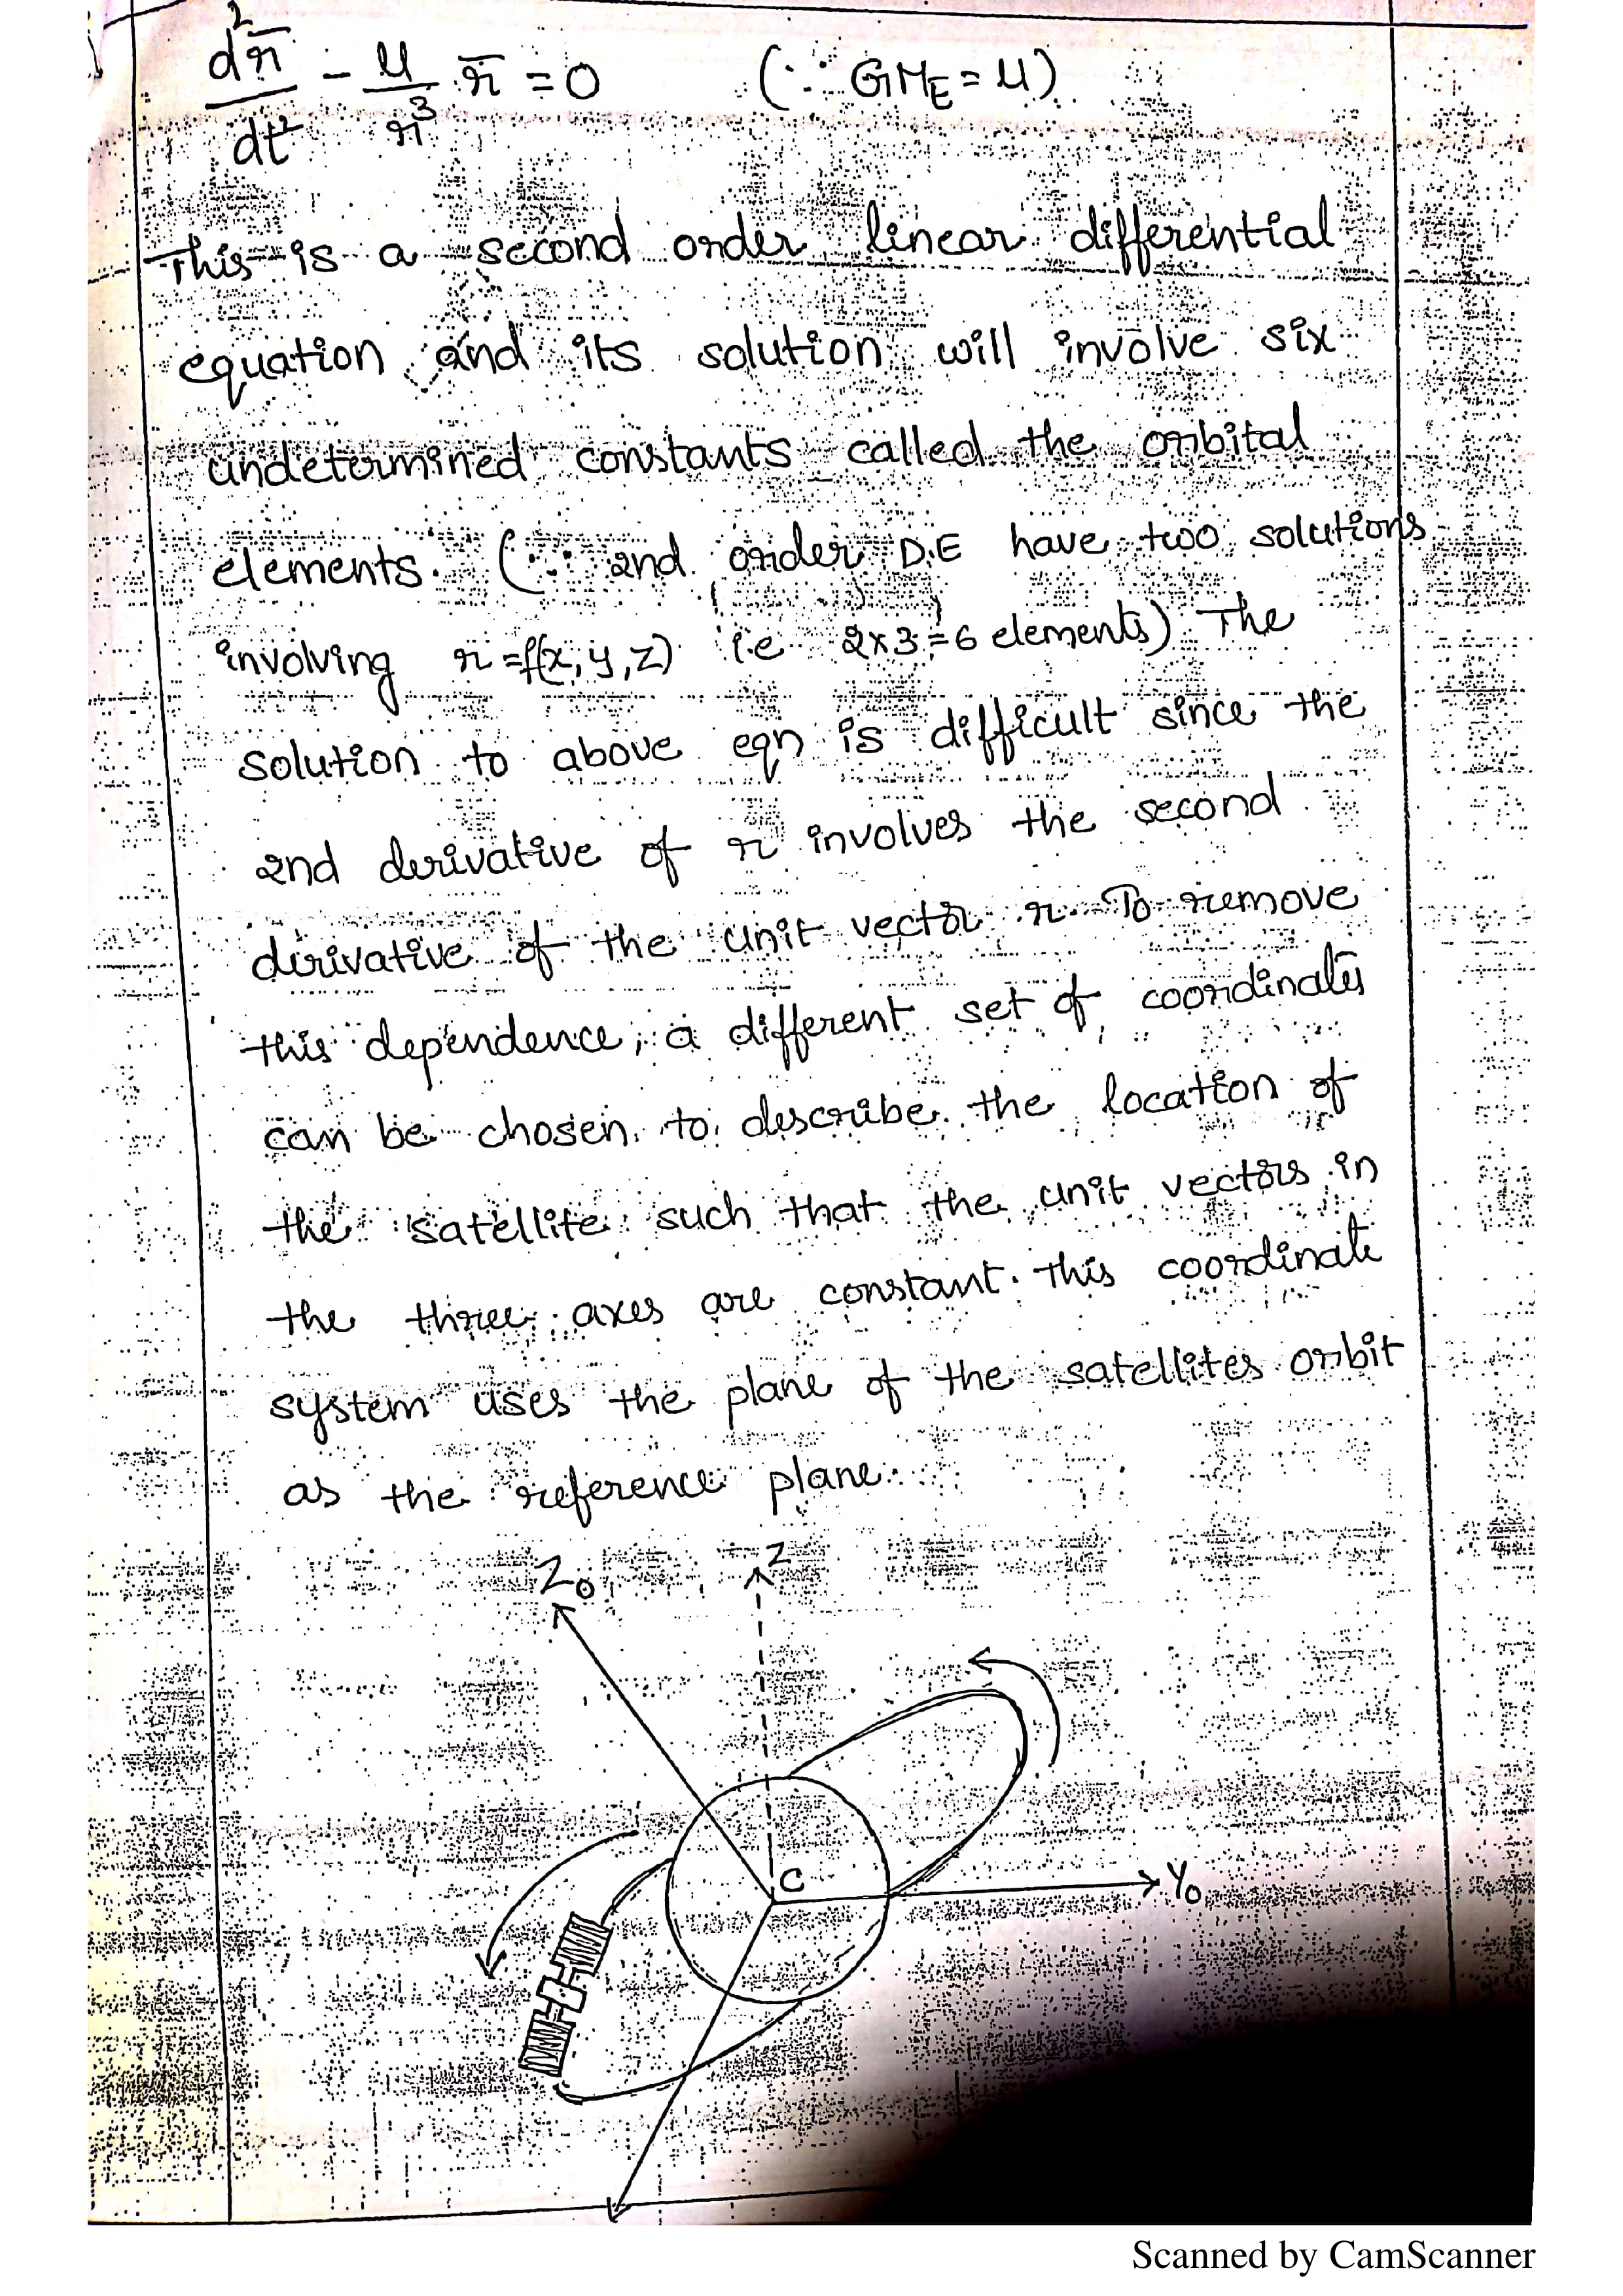 d²r̄/dt² - μ/r³ r̄ = 0 (∵ GM_E = μ)
This is a second order linear differential
equation and its solution will involve six
undetermined constants called the orbital
elements. (∵ 2nd order D.E have two solutions
involving r = f(x, y, z) i.e 2x3 = 6 elements) The
solution to above eqn is difficult since the
2nd derivative of r involves the second
derivative of the unit vector r. To remove
this dependence, a different set of coordinates
can be chosen to describe the location of
the satellite such that the unit vectors in
the three axes are constant. This coordinate
system uses the plane of the satellites orbit
as the reference plane.
Z₀ Z
C
Y₀
Scanned by CamScanner